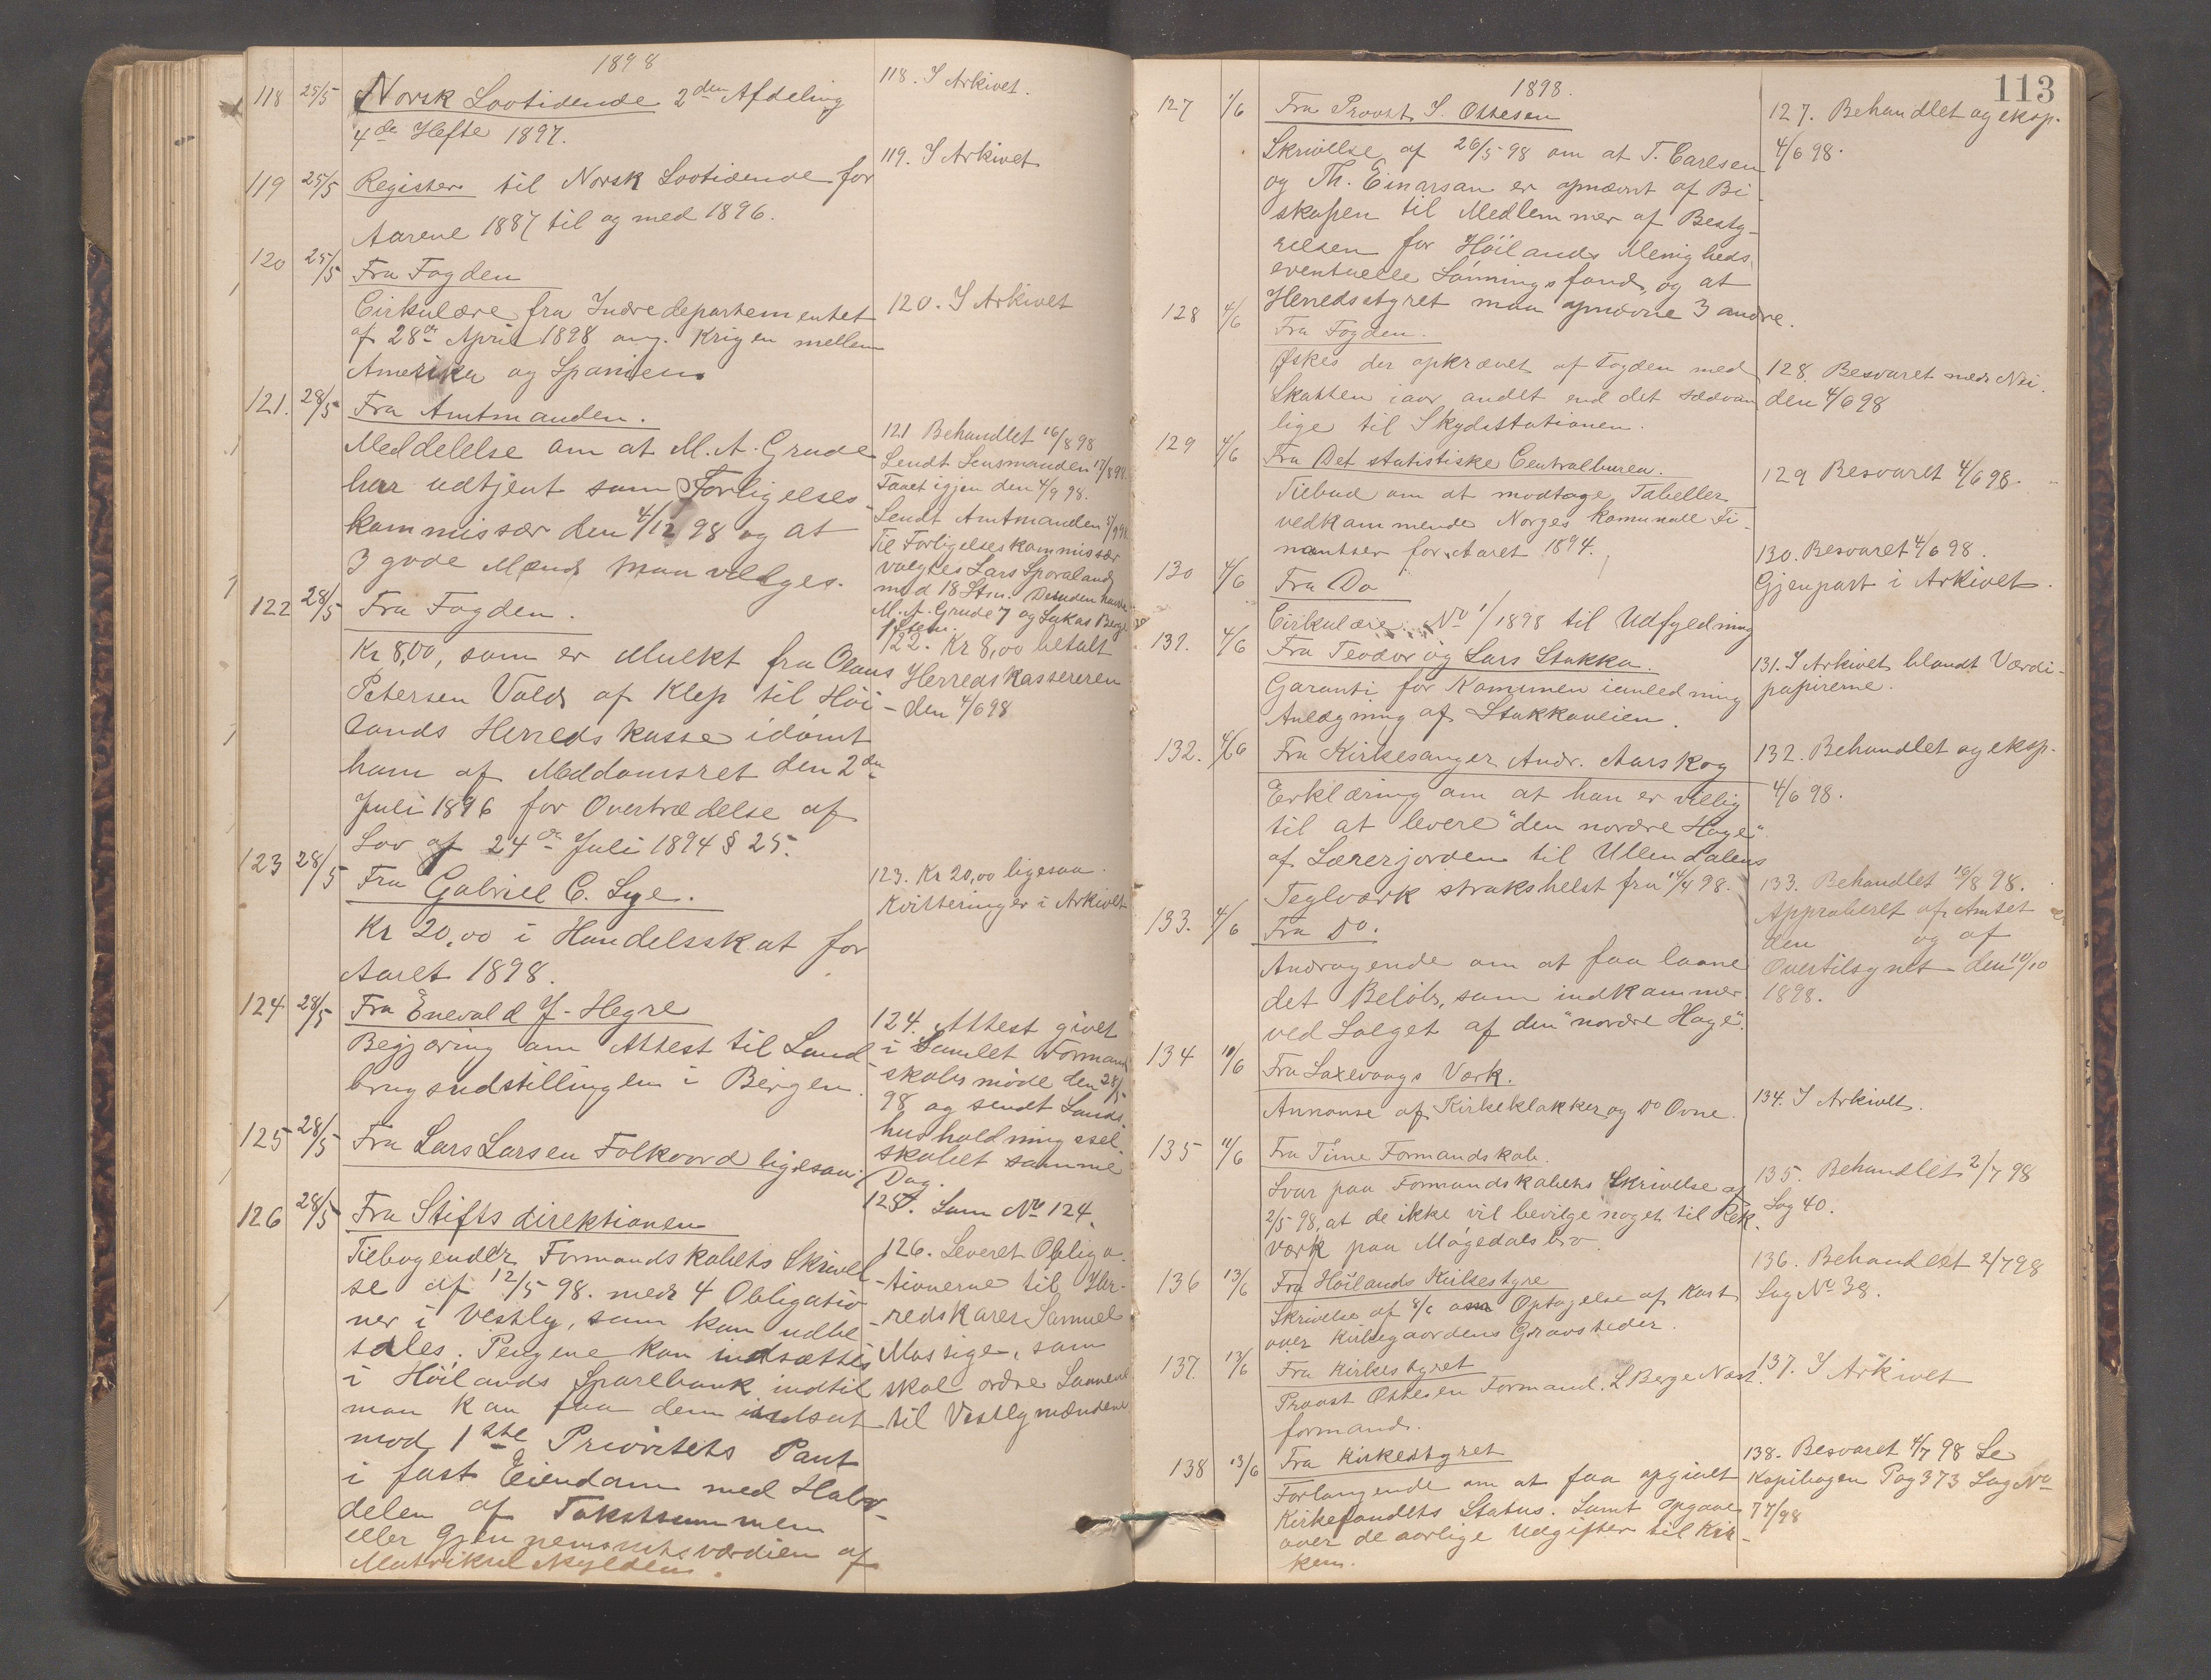 1898
118 25/5 Norsk Lovtidende 2den Afdeling
4de Hefte 1897.
118. I Arkivet.
119 25/5 Register til Norsk Lovtidende for
Aarene 1887 til og med 1896.
119. I Arkivet
120 25/5 Fra Fogden
Cirkulære fra Indredepartementet
af 28de April 1898 ang. Krigen mellem
Amerika og Spanien.
120. I Arkivet
121. 28/5 Fra Amtmanden.
Meddelelse om at M. A. Grude
har udtjent som Forligelses-
kommissær den 4/12 98 og at
3 gode Mænd maa vælges.
121 Behandlet 16/8 98
Sendt Lensmanden 17/8 98.
Faaet igjen den 4/9 98.
Sendt Amtmanden 5/9 98.
Til Forligelseskommissær
valgtes Lars Sporaland
med 18 Stm. Desuden havde
M. A. Grude 7 og Lukas Berge
1 Stem.
122 28/5 Fra Fogden.
Kr 8,00, som er Mulkt fra Olaus
Petersen Vold af Klep til Höi-
lands Herredskasse idömt
ham af Meddomsret den 2den
Juli 1896 for Overtrædelse af
Lov af 24de Juli 1894 § 25.
122. Kr 8,00 betalt
Herredskassereren
den 4/6 98
123 28/5 Fra Gabriel C. Lye.
Kr 20,00 i Handelsskat for
Aaret 1898.
123. Kr 20,00 ligesaa.
Kvitteringer i Arkivet
124 28/5 Fra Enevald J. Hegre
Begjæring om Attest til Land-
brugsudstillingen i Bergen.
124. Attest givet
i Samlet Formand-
skabsmöde den 28/5
98 og sendt Lands-
husholdningssel-
skabet samme
Dag.
125 28/5 Fra Lars Larsen Folkvord ligesaa.
125. Som No 124.
126 28/5 Fra Stiftsdirektionen
Tilbagesender Formandskabets Skrivel-
se af 12/5 98. med 4 Obligatio-
ner i Vestly, som kan udbe-
tales. Pengene kan indsættes
i Höilands Sparebank indtil
man kan faa dem indsat
mod 1ste Prioritets Pant
i fast Eiendom med Halv-
delen af Takstsummen
eller Gjennemsnitsværdien af
Matrikulskylden.
126. Leveret Obliga-
tionerne til Her-
redskasser Samuel
Mossige, som
skal ordne Laanene
til Vestlymændene
113
1898.
127 1/6 Fra Provst S. Ottesen
Skrivelse af 26/5 98 om at T. Carlsen
og Th. Einarsen er opnævnt af Bi-
skopen til Medlemmer af Besty-
relsen for Höilands Menigheds
eventuelle Lönningsfond, og at
Herredsstyret maa opnævne 3 andre.
127. Behandlet og eksp.
4/6 98.
128 4/6 Fra Fogden.
Öskes der opkrævet af Fogden med
Skatten iaar andet end det sædvan-
lige til Skydsstationen.
128. Besvaret med Nei.
den 4/6 98
129 4/6 Fra Det statistiske Centralbureau.
Tilbud om at modtage Tabeller
vedkommende Norges komunale Fi-
nantser for Aaret 1894.
129 Besvaret 4/6 98.
130 4/6 Fra Do
Cirkulære No 1/1898 til Udfyldning
130. Besvaret 4/6 98.
Gjenpart i Arkivet.
131. 4/6 Fra Teodor og Lars Stokka.
Garanti for Komunen ianledning
Anlægning af Stokkaveien.
131. I Arkivet blandt Værdi-
papirerne.
132. 4/6 Fra Kirkesanger Andr. Aarskog
Erklæring om at han er villig
til at levere "den nordre Hage"
af Lærerjorden til Ullendalens
Teglværk strakshelst fra 14/4 98.
132. Behandlet og eksp.
4/6 98.
133. 4/6 Fra Do.
Andragende om at faa laane
det Belöb, som indkommer
ved Salget af den "nordre Hage".
133. Behandlet 16/8 98.
Approberet af Amtet
den og af
Overtilsynet den 10/10
1898.
134 10/6 Fra Laxevaags Værk.
Annonse af Kirkeklokker og Do Ovne.
134. I Arkivet.
135 11/6 Fra Time Formandskab.
Svar paa Formandskabets Skrivelse af
2/5 98, at de ikke vil bevilge noget til Rek-
værk paa Mögedals bro.
135. Behandlet 2/7 98
Sag 40.
136 13/6 Fra Höilands Kirkestyre
Skrivelse af 8/6 om Optagelse af Kart
over Kirkegaardens Gravsteder.
136. Behandlet 2/7 98
Sag No 38.
137. 13/6 Fra Kirkestyret
Provst Ottesen Formand. L Berge Næst-
formand.
137. I Arkivet
138 13/6 Fra Kirkestyret
Forlangende om at faa opgivet
Kirkefondets Status. Samt Opgave
over de aarlige Udgifter til Kir-
ken.
138. Besvaret 4/7 98 Se
Kopibogen Pag 373 Sag No
77/98